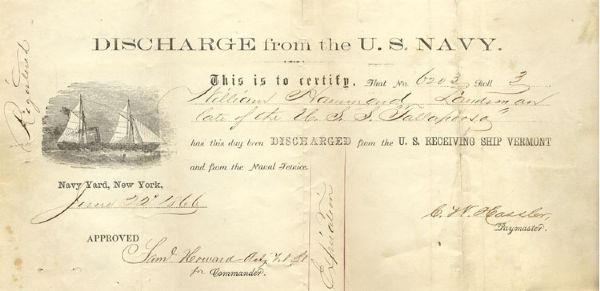 DISCHARGE from the U. S. NAVY.
This is to certify, That No. 6203 Roll 3
William Hammond, Landsman
late of the U. S. S. "Tallapoosa"
has this day been DISCHARGED from the U. S. RECEIVING SHIP VERMONT
and from the Naval Service.
Navy Yard, New York,
June 22d 1866
C. W. Hassler,
Paymaster.
APPROVED
Saml Howard
for Commander.
Registered